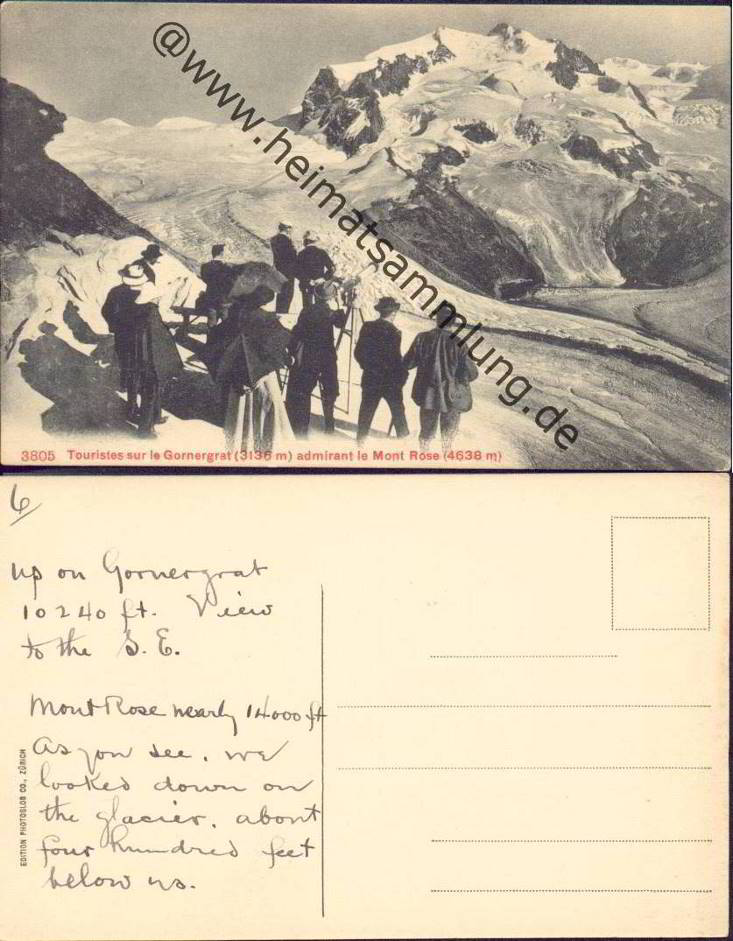 @www.heimatsammlung.de
3805 Touristes sur le Gornergrat (3136 m) admirant le Mont Rose (4638 m)
6
up on Gornergrat
10240 ft. View
to the S. E.
Mont Rose nearly 14000 ft
As you see, we
looked down on
the glacier, about
four hundred feet
below us.
EDITION PHOTOGLOB CO., ZÜRICH